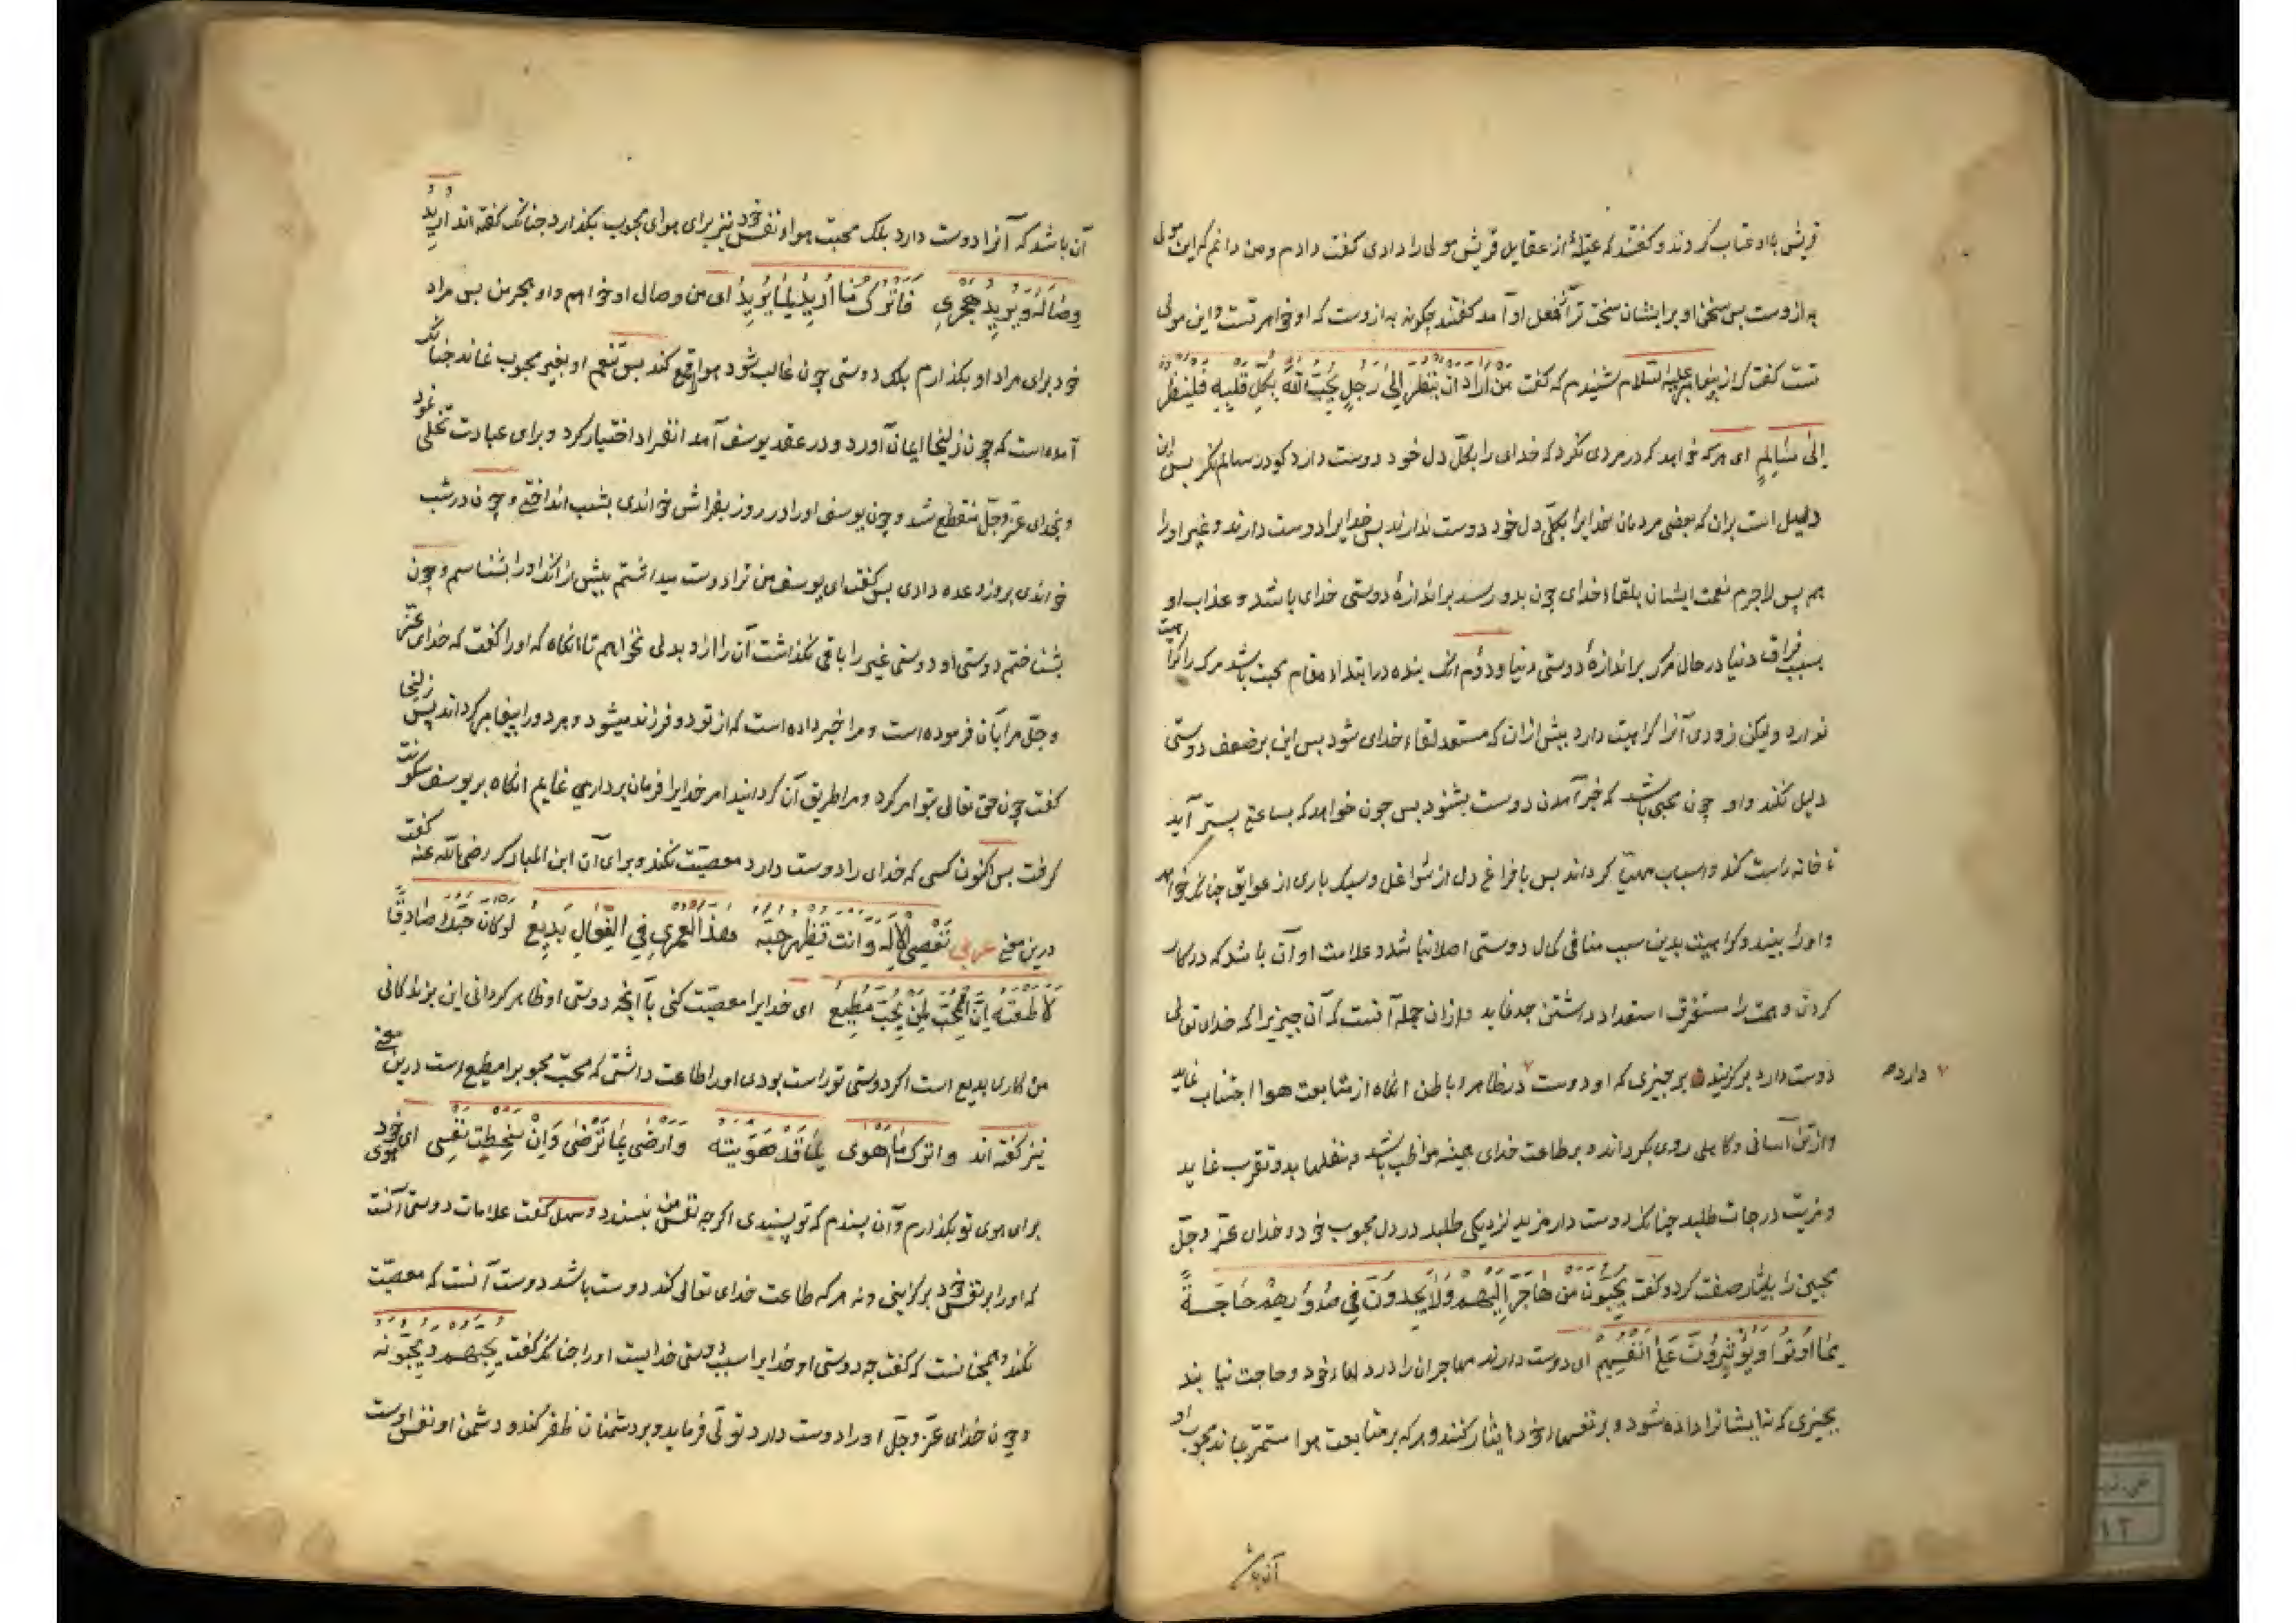 قریش با او عتاب کردند و گفتند که عقیلهٔ از عقایل قریش مولی را دادی گفت دادم و من دانم که این مولی
به ازوست بس سخن او بر ایشان سخت تر از فعل او آمد گفتند چگونه به ازوست که او خواهر تست و این مولی
تست گفت که از پیغامبر علیه السلام شنیدم که گفت مَنْ اَرَادَ اَنْ یَنْظُرَ اِلیٰ رَجُلٍ یُحِبُّ اللّٰهَ بِکُلِّ قَلْبِهِ فَلْیَنْظُرْ
اِلیٰ سَالِمٍ ای هر که خواهد که در مردی نگرد که خدای را بکلّ دل خود دوست دارد کو در سالم نگر بس این
دلیل است بران که بعضی مردمان خدایرا بکلّ دل خود دوست ندارند بس خدایرا دوست دارند و غیر او را
هم پس لاجرم نعمت ایشان بلقاء خدای چون بدو رسند بر اندازهٔ دوستی خدای باشد و عذاب او
بسبب فراق دنیا در حال مرگ بر اندازهٔ دوستی دنیا و دوّم انک بنده در ابتداء مقام محبت باشد مرک را کراهیت
ندارد ولیکن زودی آنرا کراهیت دارد بیش ازان که مستعد لقاء خدای شود بس این بر ضعف دوستی
دلیل نکند و او چون محبی باشد که خبر آمدن دوست بشنود بس چون خواهد که بساعتی پستر آید
تا خانه راست کند و اسباب مهیّا کرداند بس با فراغ دل از شواغل و سبک باری از عوایق چنانکه خواهد
و او را بیند و کراهیت بدین سبب منافی کمال دوستی اصلا نباشد و علامت او آن باشد که در کار
کردن و همت را مستغرق استعداد داشتن جد نماید و ازان جمله آنست که آن چیزیرا که خدای تعالی
دوست دارد برگزیند بر چیزی که او دوست در ظاهر و باطن انکاه از متابعت هوا اجتناب نماید
دارد
و از تن آسانی و کاهلی روی بکرداند و بر طاعت خدای همیشه مواظب باشد و بنفلها بدو تقرب نماید
و مزیت درجات طلبد چنانک دوست دار مزید نزدیکی طلبد در دل محبوب خود و خدای عزّ و جلّ
محبین را بایثار صفت کرد و گفت یُحِبُّونَ مَنْ هَاجَرَ اِلَیْهِمْ وَلَا یَجِدُونَ فِی صُدُورِهِمْ حَاجَةً
مِمَّا اُوتُوا وَیُؤْثِرُونَ عَلیٰ اَنْفُسِهِمْ ای دوست دارند مهاجران را و در دلهاء خود حاجت نیابند
بچیزی که بدایشانرا داده شود و بر نفسهاء خود ایثار کنند و هر که بر متابعت هوا مستمر بماند محبوب او
آن باشد
آن باشد که آنرا دوست دارد بلک محبت هواء نفس خود نیز برای هوای محبوب بکذارد چنانک گفته اند اُرِیدُ
وِصَالَهُ وَیُرِیدُ هَجْرِی فَاَتْرُکُ مَا اُرِیدُ لِمَا یُرِیدُ ای من وصال او خواهم و او هجر من بس مراد
خود برای مراد او بکذارم بلک دوستی چون غالب شود هوا قمع کند بس تنعم او بغیر محبوب نماند چنانک
آمده است که چون زلیخا ایمان آورد و در عقد یوسف آمد انفراد اختیار کرد و برای عبادت تخلی نمود
و بخدای عزّ و جلّ منقطع شد و چون یوسف او را در روز بفراش خواندی بشب انداختی و چون در شب
خواندی بروز وعده دادی بس گفت ای یوسف من ترا دوست میداشتم بیش از انک او را بشناسم و چون
بشناختم دوستی او دوستی غیر را باقی نکذاشت آن را ازو بدلی نخواهم تا انکاه که او را گفت که خدای عزّ
و جلّ مرا بآن فرموده است و مرا خبر داده است که از تو دو فرزند میشود و هر دو را پیغامبر کرداند پس زلیخا
گفت چون حق تعالی بتو امر کرد و مرا طریق آن کردانید امر خدایرا فرمان برداری نمایم انکاه بر یوسف سکونت
کرفت بس اکنون کسی که خدای را دوست دارد معصیت نکند و برای آن ابن المبارک رضی الله عنه گفت
درین معنی عربی تَعْصِی الْاِلٰهَ وَاَنْتَ تُظْهِرُ حُبَّهُ هٰذَا لَعَمْرِی فِی الْفِعَالِ بَدِیعُ لَوْ کَانَ حُبُّکَ صَادِقًا
لَاَطَعْتَهُ اِنَّ الْمُحِبَّ لِمَنْ یُحِبُّ مُطِیعُ ای خدایرا معصیت کنی با آنچه دوستی او ظاهر کردانی این بزندکانی
من کاری بدیع است اکر دوستی تو راست بودی او را طاعت داشتی که محبّ محبوبرا مطیع است درین معنی
نیز گفته اند وَاَتْرُکُ مَا اَهْوی لِمَا قَدْ هَوَیْتَهُ وَاَرْضیٰ بِمَا تَرْضیٰ وَاِنْ سَخِطَتْ نَفْسِی ای هوی خود
برای هوی تو بکذارم و آن پسندم که تو پسندی اکرچه نفس من نپسندد و سهل گفت علامات دوستی آنست
که او را بر نفس خود برکزینی و نه هر که طاعت خدای تعالی کند دوست باشد دوست آنست که معصیت
نکند و همچنانست که گفت چه دوستی او خدایرا سبب دوستی خدایست او را چنانک گفت یُحِبُّهُمْ وَیُحِبُّونَهُ
و چون خدای عزّ و جلّ او را دوست دارد تولّی فرماید و بر دشمنان ظفر کند و دشمن او نفس اوست